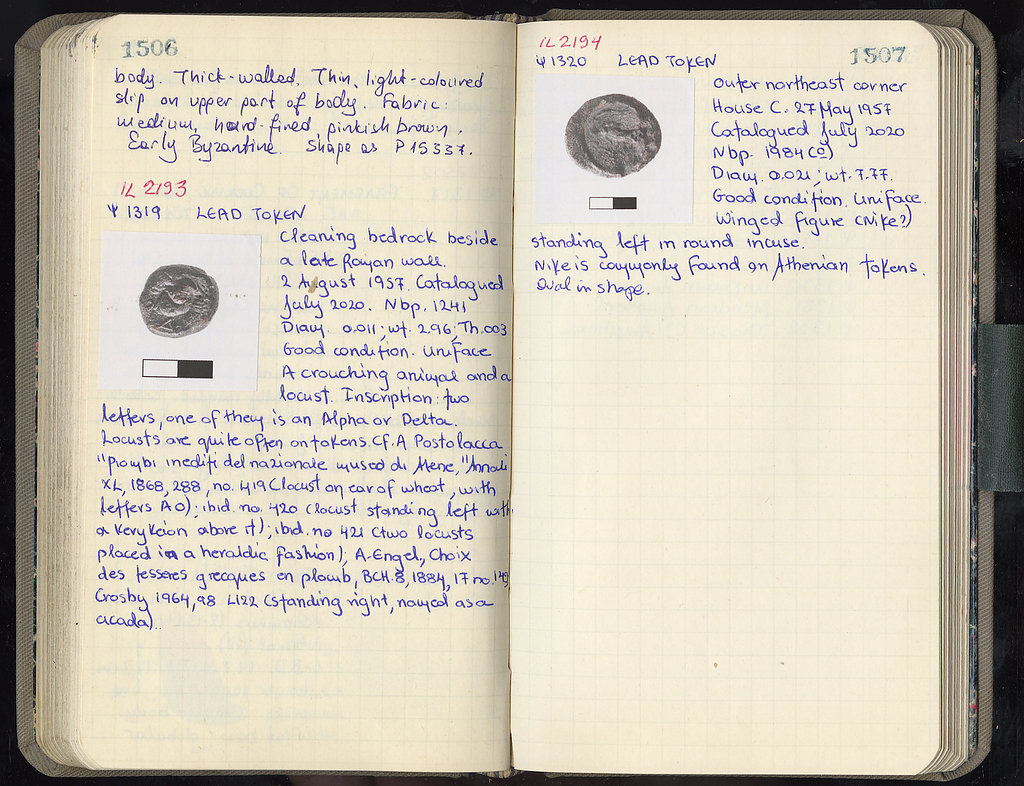 1506
body. Thick-walled. Thin, light-coloured
slip on upper part of body. Fabric:
medium, hard-fired, pinkish brown.
Early Byzantine. Shape as P 15337.
IL 2193
Ψ 1319 LEAD TOKEN
Cleaning bedrock beside
a late Roman wall.
2 August 1957. Catalogued
July 2020. Nbp. 1241
Diam. 0.011; wt. 2.96; Th.003
Good condition. Uniface
A crouching animal and a
locust. Inscription: two
letters, one of them is an Alpha or Delta.
Locusts are quite often on tokens. Cf. A Postolacca
"Piombi inediti del nazionale museo di Atene," Annali
XL, 1868, 288, no. 419 (locust on ear of wheat, with
letters A O); ibid. no. 420 (locust standing left with
a kerykeion above it); ibid. no 421 (two locusts
placed in a heraldic fashion); A. Engel, Choix
des tesseres grecques en plomb, BCH 8, 1884, 17 no.
Crosby 1964, 98 L122 (standing right, named as a
cicada).
IL 2194
1507
Ψ 1320 LEAD TOKEN
Outer northeast corner
House C. 27 May 1957
Catalogued July 2020
Nbp. 1984
Diam. 0.021; wt. 7.77.
Good condition. Uniface.
Winged figure (Nike?)
standing left in round incuse.
Nike is commonly found on Athenian tokens.
Oval in shape.